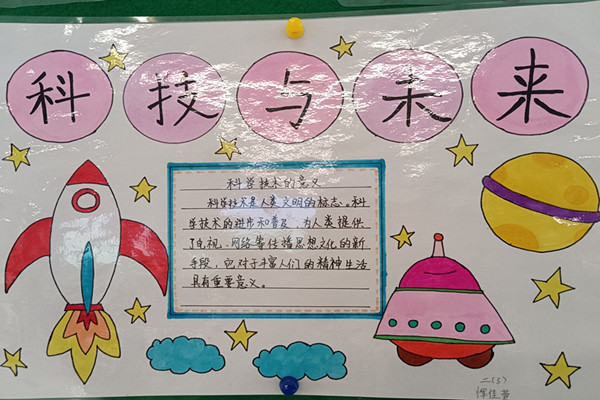 科技与未来
科学技术的意义
科学技术是人类文明的标志。科
学技术的进步和普及，为人类提供
了电视，网络等传播思想文化的新
手段，它对于丰富人们的精神生活
具有重要意义。
二(3)